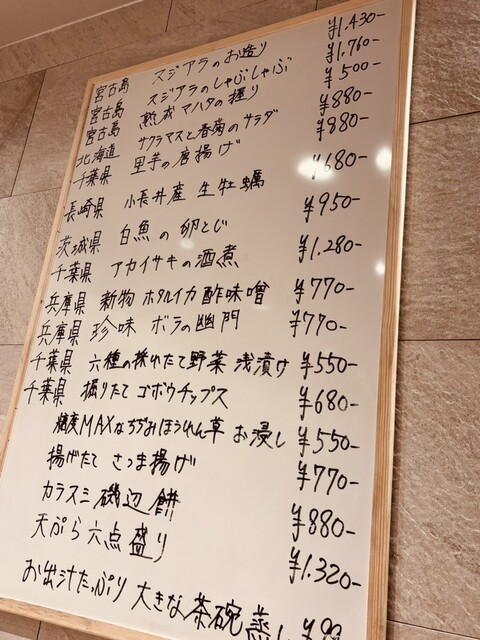 宮古島 スジアラのお造り ¥1,430-
宮古島 スジアラのしゃぶしゃぶ ¥1,760-
宮古島 熟成マハタの握り ¥500-
北海道 サクラマスと春菊のサラダ ¥880-
千葉県 里芋の唐揚げ ¥880-
長崎県 小長井産 生牡蠣 ¥680-
茨城県 白魚の卵とじ ¥950-
千葉県 アカイサキの酒煮 ¥1,280-
兵庫県 新物ホタルイカ酢味噌 ¥770-
兵庫県 珍味 ボラの幽門 ¥770-
千葉県 六種の採れたて野菜 浅漬け ¥550-
千葉県 掘りたて ゴボウチップス ¥680-
糖度MAXなちぢみほうれん草 お浸し ¥550-
揚げたて さつま揚げ ¥770-
カラスミ磯辺餅 ¥880-
天ぷら六点盛り ¥1,320-
お出汁たっぷり 大きな茶碗蒸し